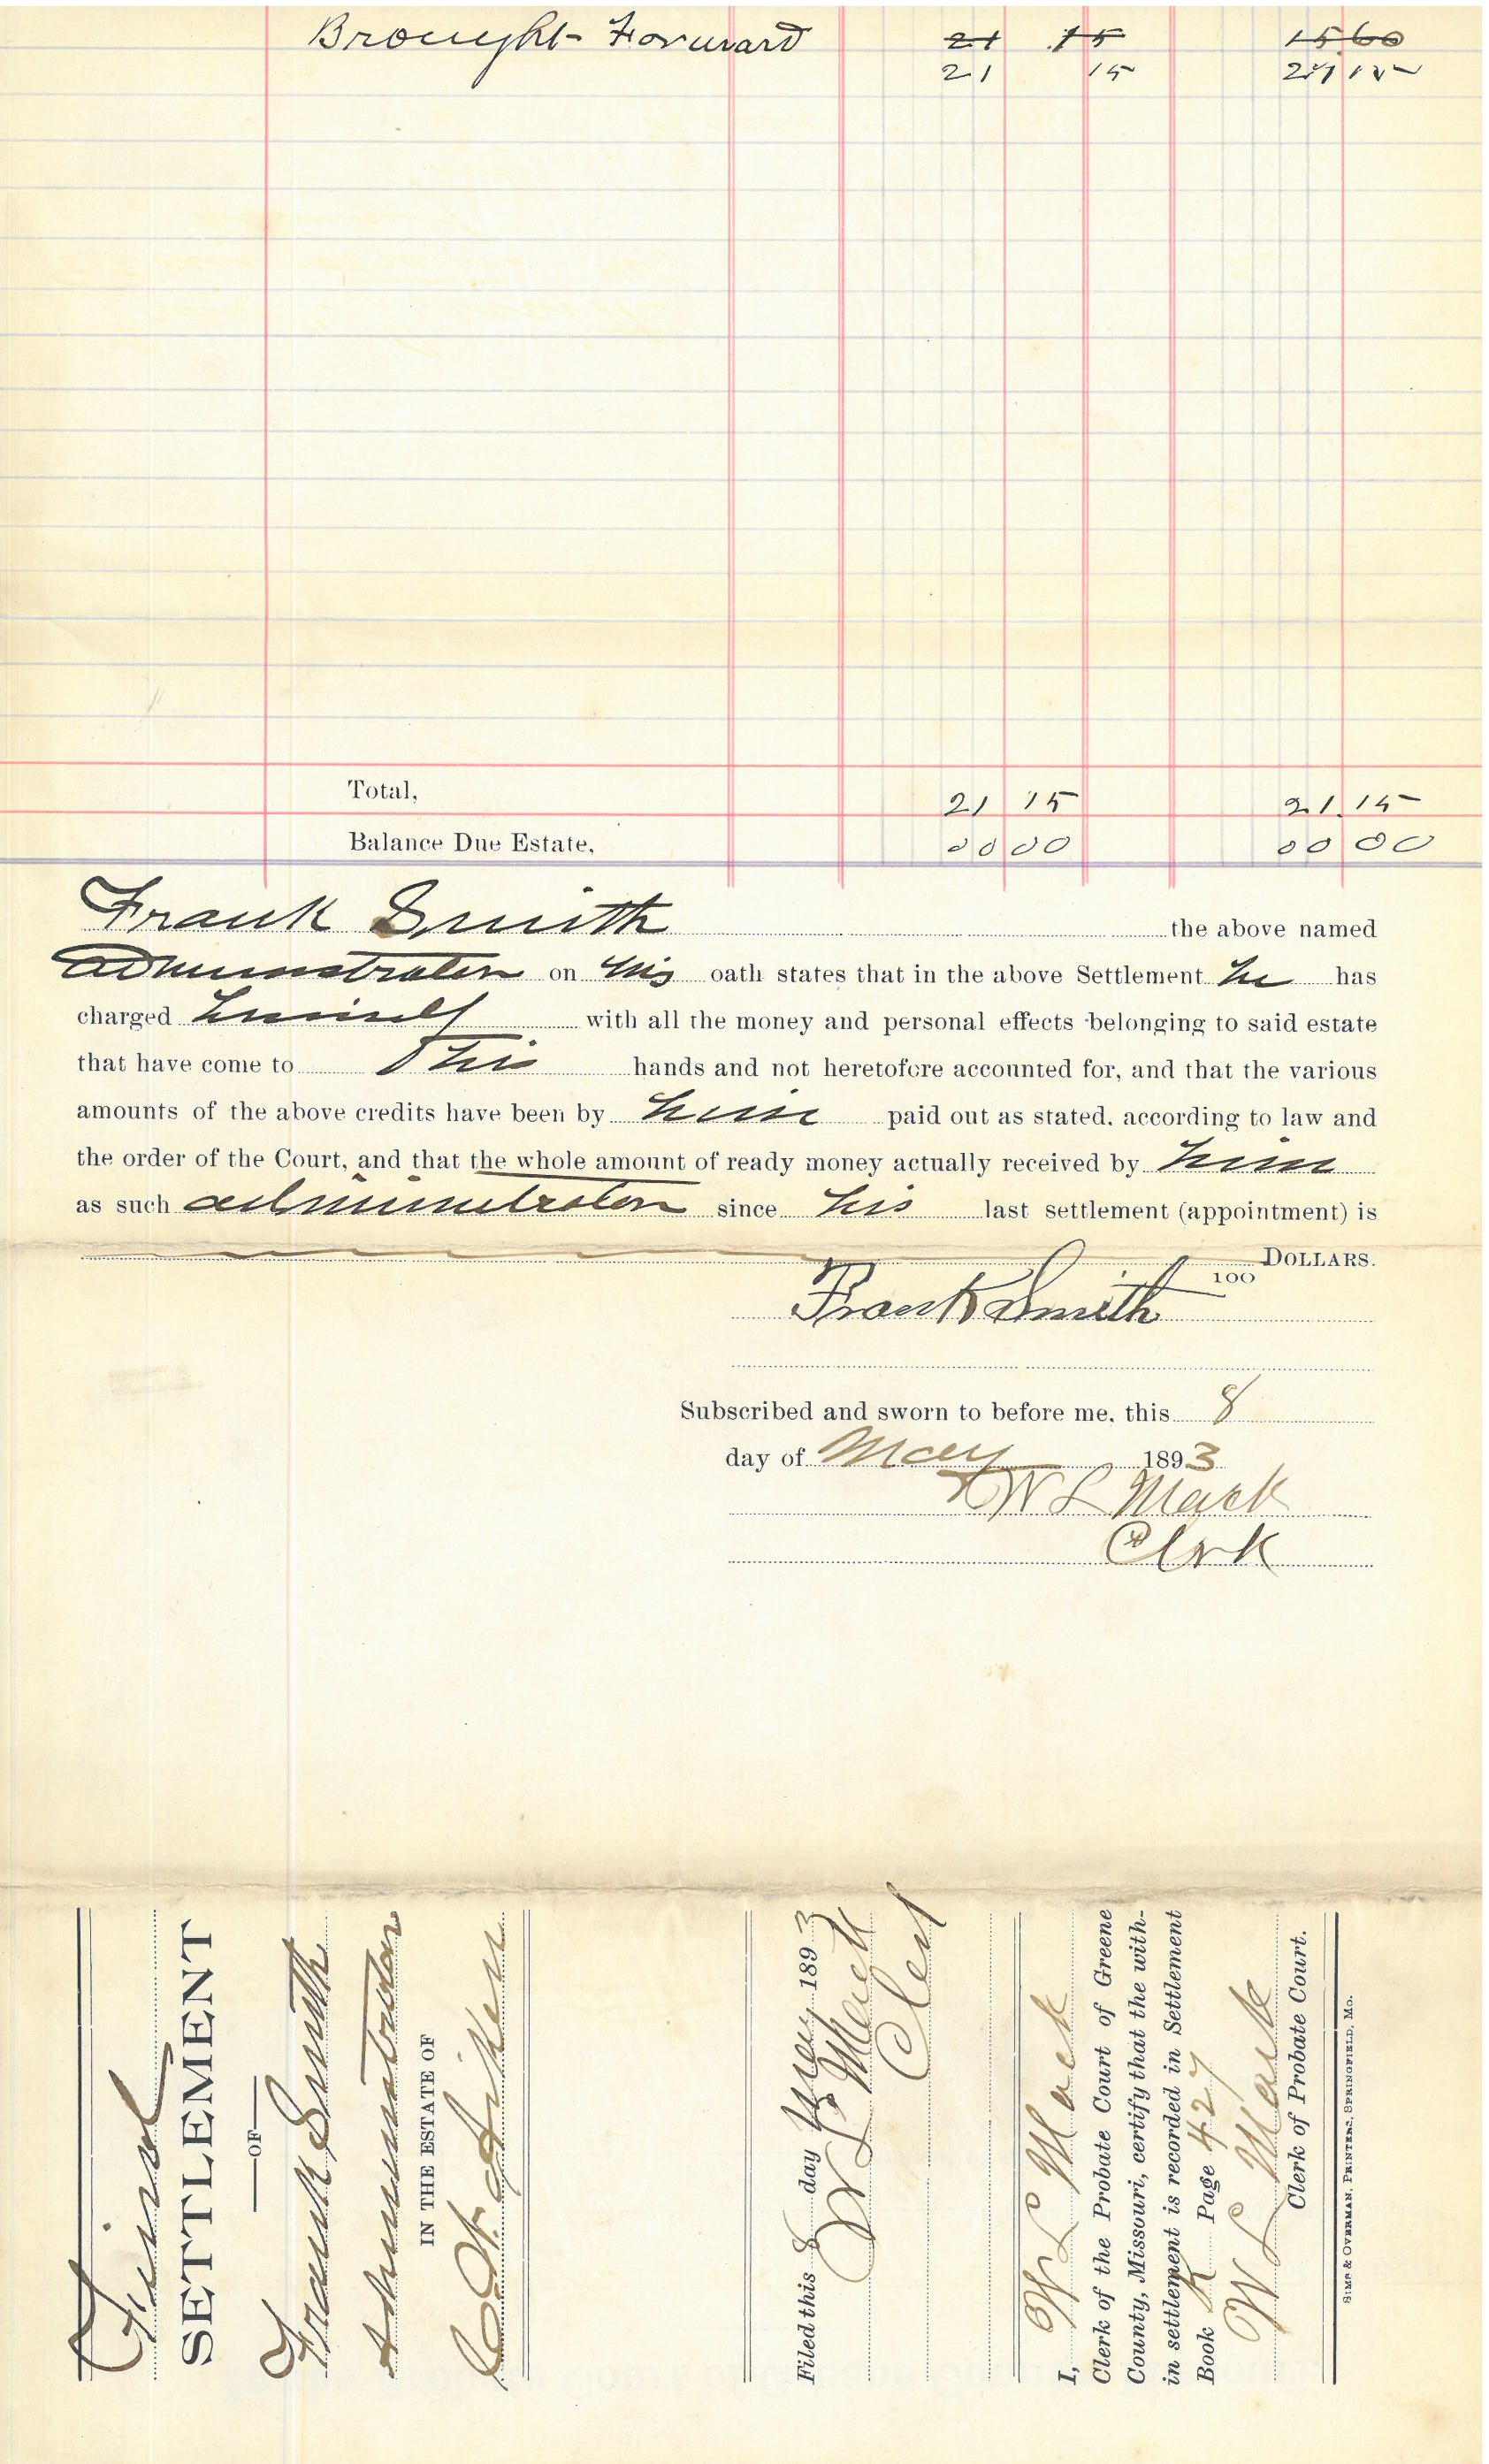 Brought Forward 21 15 15 60
21 15 21 15
Total, 21 15 21 15
Balance Due Estate, 00 00 00 00
Frank Smith the above named
administrator on his oath states that in the above Settlement he has
charged himself with all the money and personal effects belonging to said estate
that have come to his hands and not heretofore accounted for, and that the various
amounts of the above credits have been by him paid out as stated, according to law and
the order of the Court, and that the whole amount of ready money actually received by him
as such administrator since his last settlement (appointment) is
DOLLARS.
100
Frank Smith
Subscribed and sworn to before me, this 8
day of May 1893
W L Mack
Clerk
Final
SETTLEMENT
OF
Frank Smith
Administrator
IN THE ESTATE OF
Aiken
Filed this 8 day May 1893
W L Mack
Clerk
I, W L Mack
Clerk of the Probate Court of Greene
County, Missouri, certify that the with-
in settlement is recorded in Settlement
Book K Page 427
W L Mack
Clerk of Probate Court.
SIMS & OVERMAN, PRINTERS, SPRINGFIELD, MO.